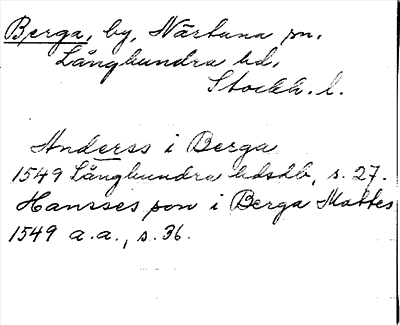 Berga, by, Närtuna sn.
Långhundra hd.
Stockh. l.
Anderss i Berga
1549 Långhundra hdshb, s. 27.
Hansses son i Berga Mattes
1549 a.a., s. 36.